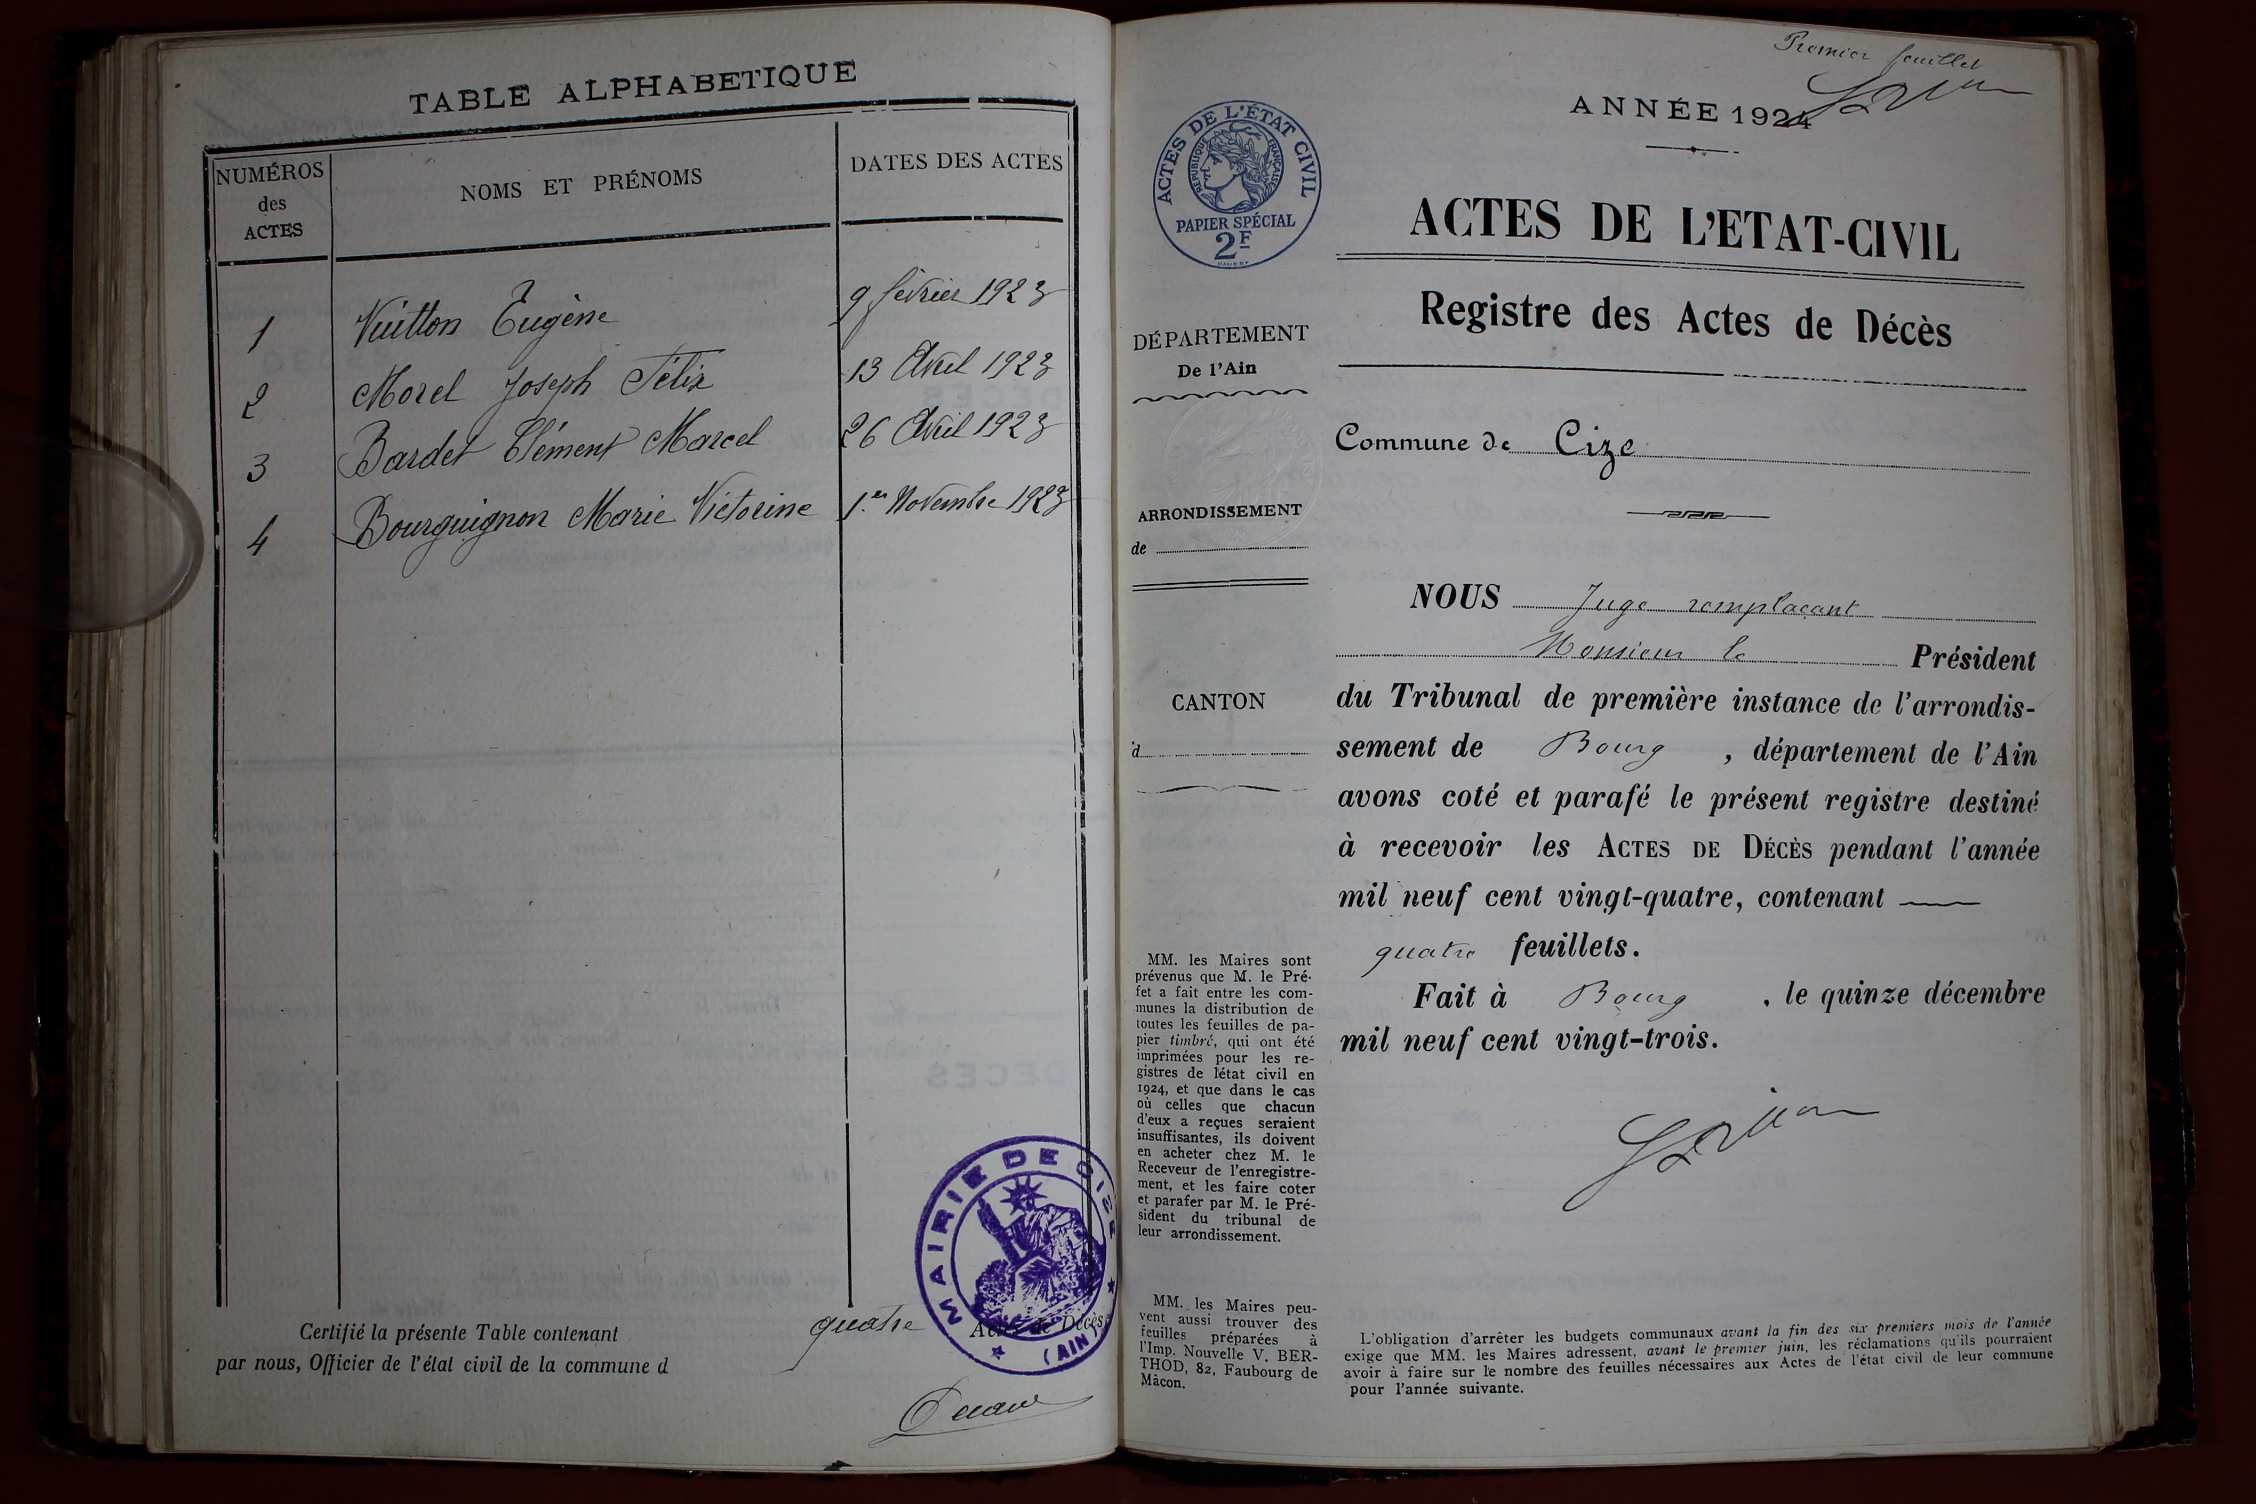 TABLE ALPHABETIQUE
NUMÉROS
des
ACTES
NOMS ET PRÉNOMS
DATES DES ACTES
1 Vuitton Eugène 9 février 1923
2 Morel Joseph Félix 13 Avril 1923
3 Bardet Clément Marcel 26 Avril 1923
4 Bourguignon Marie Victorine 1er Novembre 1923
Certifié la présente Table contenant quatre Actes de Décès
par nous, Officier de l'état civil de la commune d
MAIRIE DE CIZE
(AIN)
Premier feuillet
ANNÉE 1924
ACTES DE L'ÉTAT CIVIL
RÉPUBLIQUE FRANÇAISE
PAPIER SPÉCIAL
2F
ACTES DE L'ETAT-CIVIL
Registre des Actes de Décès
DÉPARTEMENT
De l'Ain
Commune de Cize
ARRONDISSEMENT
de
CANTON
d
NOUS Juge remplaçant
Monsieur le Président
du Tribunal de première instance de l'arrondis-
sement de Bourg, département de l'Ain
avons coté et parafé le présent registre destiné
à recevoir les ACTES DE DÉCÈS pendant l'année
mil neuf cent vingt-quatre, contenant
quatre feuillets.
Fait à Bourg, le quinze décembre
mil neuf cent vingt-trois.
MM. les Maires sont
prévenus que M. le Pré-
fet a fait entre les com-
munes la distribution de
toutes les feuilles de pa-
pier timbré, qui ont été
imprimées pour les re-
gistres de l'état civil en
1924, et que dans le cas
où celles que chacun
d'eux a reçues seraient
insuffisantes, ils doivent
en acheter chez M. le
Receveur de l'enregistre-
ment, et les faire coter
et parafer par M. le Pré-
sident du tribunal de
leur arrondissement.
MM. les Maires peu-
vent aussi trouver des
feuilles préparées à
l'Imp. Nouvelle V. BER-
THOD, 82, Faubourg de
Mâcon.
L'obligation d'arrêter les budgets communaux avant la fin des six premiers mois de l'année
exige que MM. les Maires adressent, avant le premier juin, les réclamations qu'ils pourraient
avoir à faire sur le nombre des feuilles nécessaires aux Actes de l'état civil de leur commune
pour l'année suivante.